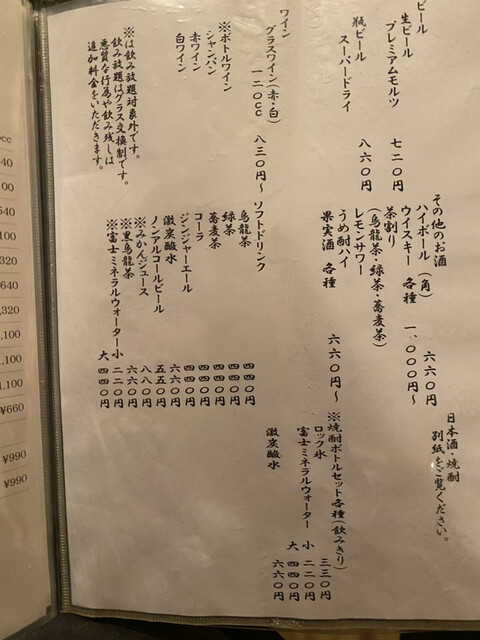 ビール
生ビール
プレミアムモルツ 七二〇円
瓶ビール
スーパードライ 八六〇円
ワイン
グラスワイン(赤・白) 一二〇cc 八三〇円〜
※ボトルワイン
シャンパン
赤ワイン
白ワイン
※は飲み放題対象外です。
飲み放題はグラス交換制です。
悪質な行為や飲み残しは
追加料金をいただきます。
その他のお酒
ハイボール(角) 六六〇円
ウイスキー 各種 一、〇〇〇円〜
茶割り
(烏龍茶・緑茶・蕎麦茶)
レモンサワー
うめ酎ハイ
果実酒 各種 六六〇円〜
ソフトドリンク
烏龍茶 四四〇円
緑茶 四四〇円
蕎麦茶 四四〇円
コーラ 四四〇円
ジンジャーエール 四四〇円
激炭酸水 六六〇円
ノンアルコールビール 五五〇円
※みかんジュース 八八〇円
※黒烏龍茶 六六〇円
※富士ミネラルウォーター 小 二二〇円
大 四四〇円
日本酒・焼酎
別紙をご覧ください。
※焼酎ボトルセット各種(飲みきり)
ロック氷 三三〇円
富士ミネラルウォーター 小 二二〇円
大 四四〇円
激炭酸水 六六〇円
¥660
¥990
¥990